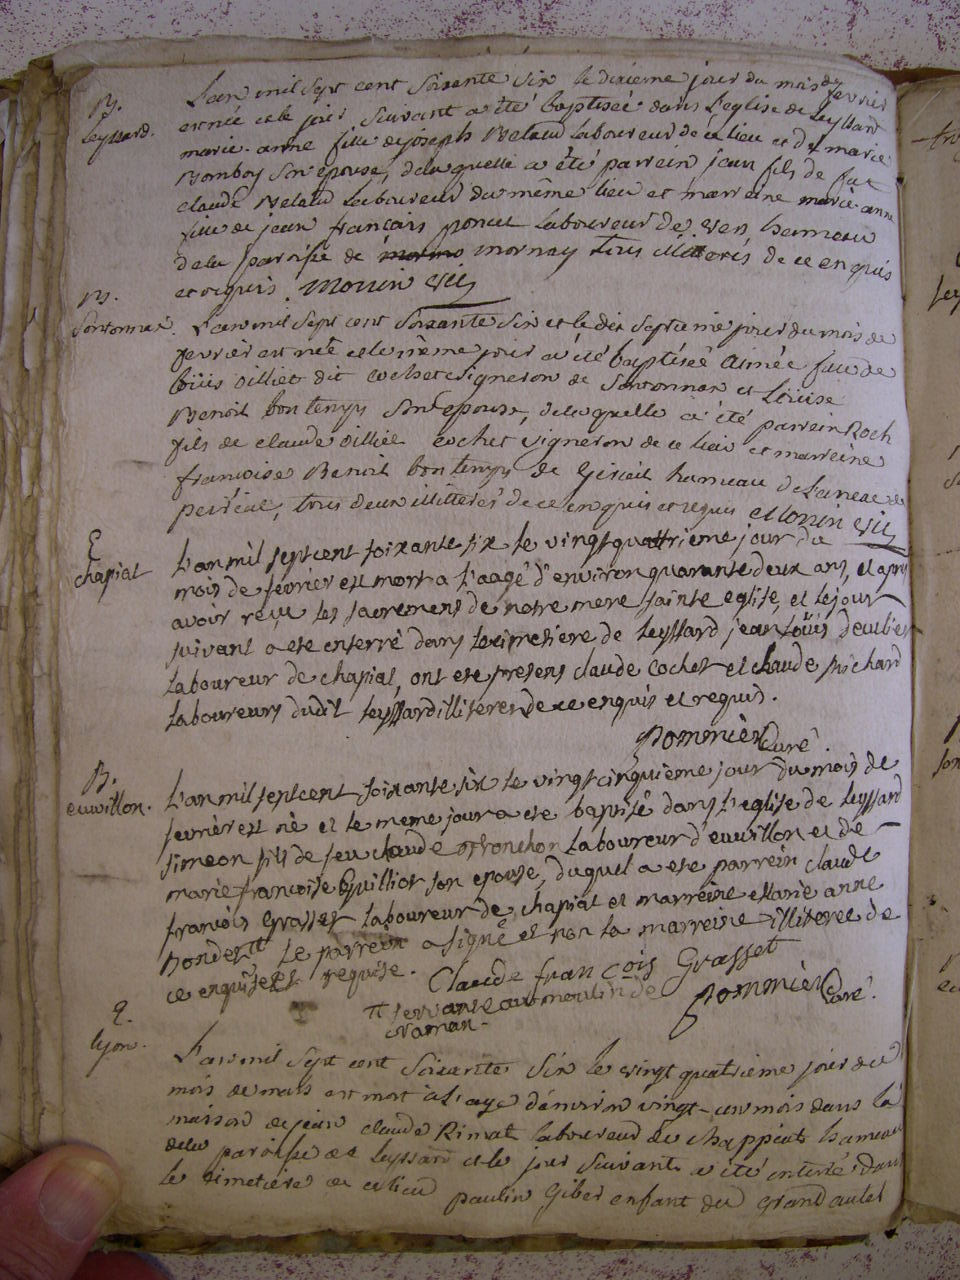 B.
Leyssard.
L'an mil sept cent soixante six le dixieme jour du mois de fevrier
est née et le jour suivant a été baptisée dans l'eglise de Leyssard
marie-anne fille de joseph Velaud laboureur de ce lieu et de marie
Bonboy son epouse, de laquelle a été parrein jean fils de fut
claude Velaud laboureur du même lieu et marreine marie-anne
fille de jean françois poncet laboureur de vers hameau
de la paroisse de mornay tous illitterés de ce enquis
et requis. Monin vic
B.
Sontonnax.
L'an mil sept cent soixante six et le dix septieme jour du mois de
fevrier est née et le même jour a été baptisée aimée fille de
loüis villiet dit cochet vigneron de Sontonnax et Loüise
Benoit bontemps son epouse, de laquelle a été parrein Roch
fils de claude villiet cochet vigneron de ce lieu et marreine
francoise Benoit bontemps de hameau de
tous deux illitterés de ce enquis et requis Monin vic
E
chapiat
L'an mil sept cent soixante six le vingt quattrieme jour du
mois de février est mort a l'aagé d'environ quarante deux ans, et apres
avoir reçu les sacremens de nostre mere sainte eglise, et le jour
suivant a ete enterrè dans le cimetiere de Leyssard jean Loüis
laboureur de chapiat, ont ete presens claude cochet et claude Michard
laboureurs dudit leyssard illiteres de ce enquis et requis.
Pommier Curé.
B.
euvillon.
L'an mil sept cent soixante six le vingt cinquieme jour du mois de
fevrièr est nè et le meme jour a ete baptisé dans l'eglise de Leyssard
simeon fils de feu claude laboureur d'euvillon et de
marie francoise Guilliot son epouse, duquel a ete parrein claude
françois Grasset laboureur de chapiat et marreine Marie anne
le parrein a signé et non la marreine illiteree de
ce enquise et requise. Claude françois Grasset
servante au moulin de
Pommier Curé.
E.
lyon.
L'an mil sept cent soixante six le vingt quatrieme jour du
mois de mars est mort à l'age d'environ vingt-un mois dans la
maison de jean claude Rimat laboureur de chappiat hameau
de la paroisse de Leyssard et le jour suivant a été enterré dans
le cimetiere de ce lieu paulin Giber enfant du Grand autel